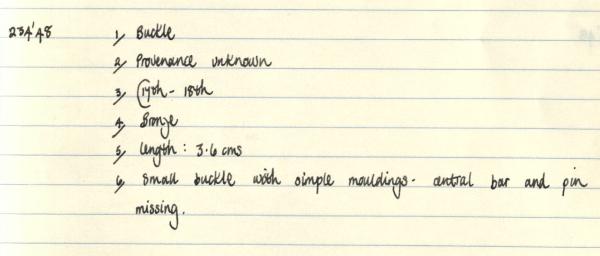 234'48 1, Buckle
2, Provenance unknown
3, (17th - 18th
4, Bronze
5, length : 3.6 cms
6, Small buckle with simple mouldings - central bar and pin
missing.